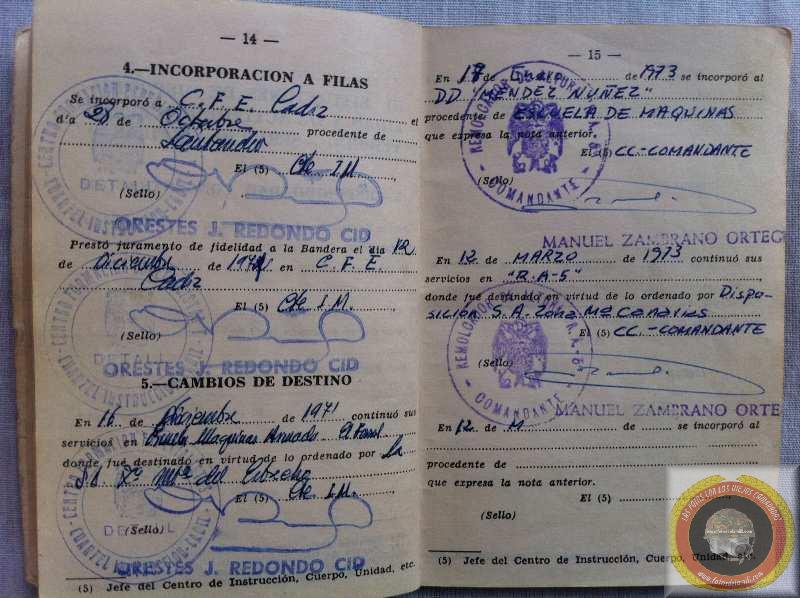 — 14 —
4.—INCORPORACION A FILAS
Se incorporó a C. F. E. Cadiz el
día 28 de Octubre procedente de
Santander
El (5) Cte I.M.
(Sello)
ORESTES J. REDONDO CID
Prestó juramento de fidelidad a la Bandera el día 12
de Diciembre 1971 en C. F. E.
Cadiz
El (5) Cte I.M.
(Sello)
DETALL
ORESTES J. REDONDO CID
5.—CAMBIOS DE DESTINO
En 16 de Diciembre de 1971 continuó sus
servicios en Escuela Maquinas Armada El Ferrol
donde fué destinado en virtud de lo ordenado por la
del Estrecho
El (5) Cte I.M.
(Sello)
ORESTES J. REDONDO CID
(5) Jefe del Centro de Instrucción, Cuerpo, Unidad, etc.
— 15 —
En 17 de Enero de 1973 se incorporó al
DD "MENDEZ NUÑEZ"
procedente de ESCUELA DE MAQUINAS
que expresa la nota anterior.
El (5) CC-COMANDANTE
(Sello)
COMANDANTE
MANUEL ZAMBRANO ORTEG
En 12 de MARZO de 1973 continuó sus
servicios en "R-A-5"
donde fué destinado en virtud de lo ordenado por Dispo-
sición S.A. Zona Ma Canarias
El (5) CC.-COMANDANTE
(Sello)
COMANDANTE
MANUEL ZAMBRANO ORTE
En 12 de M de se incorporó al
procedente de
que expresa la nota anterior.
El (5)
(Sello)
(5) Jefe del Centro de Instrucción, Cuerpo, Unidad, etc.